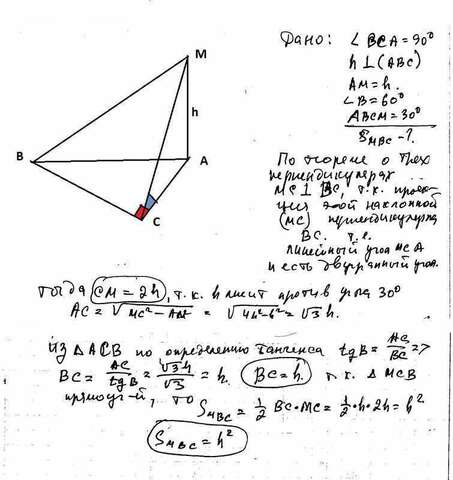 M
h
B
A
C
Дано: ∠BCA = 90°
h ⊥ (ABC)
AM = h.
∠B = 60°
ABCM = 30°
S_MBC - ?.
По теореме о трех
перпендикулярах
MC ⊥ BC, т.к. проек-
ция этой наклонной
(MC) перпендикулярна
BC. т.е.
линейный угол MCA
и есть двугранный угол.
Тогда CM = 2h, т.к. h лежит против угла 30°
AC = √MC² - AM² = √4h² - h² = √3 h.
Из △ACB по определению тангенса tg B = AC/BC =>
BC = AC/tgB = √3 h/√3 = h. BC = h. т.к. △ MCB
прямоуг-й, то
S_MBC = 1/2 BC · MC = 1/2 · h · 2h = h²
S_MBC = h²